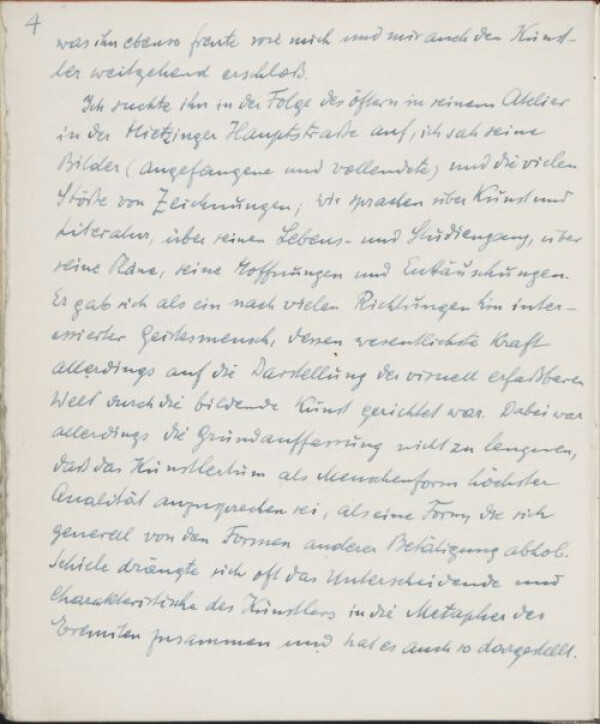 4
was ihn ebenso freute wie mich und mir auch den Künst-
ler weitgehend erschloß.
Ich suchte ihn in der Folge des öftern in seinem Atelier
in der Hietzinger Hauptstraße auf, ich sah seine
Bilder (angefangene und vollendete) und die vielen
Stöße von Zeichnungen; wir sprachen über Kunst und
Literatur, über seinen Lebens- und Studiengang, über
seine Pläne, seine Hoffnungen und Enttäuschungen.
Er gab sich als ein nach vielen Richtungen hin inter-
essierter Geistesmensch, dessen wesentlichste Kraft
allerdings auf die Darstellung der visuell erfaßbaren
Welt durch die bildende Kunst gerichtet war. Dabei war
allerdings die Grundauffassung nicht zu leugnen,
daß das Künstlertum als Menschenform höchster
Qualität anzusprechen sei, als eine Form, die sich
generell von den Formen anderer Betätigung abhob.
Schiele drängte sich oft das Unterscheidende und
Charakteristische des Künstlers in die Metapher des
Eremiten zusammen und hat es auch so dargestellt.